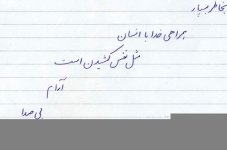 بخاطر بسپار
همراهی خدا با انسان
مثل نفس کشیدن است
آرام
بی صدا